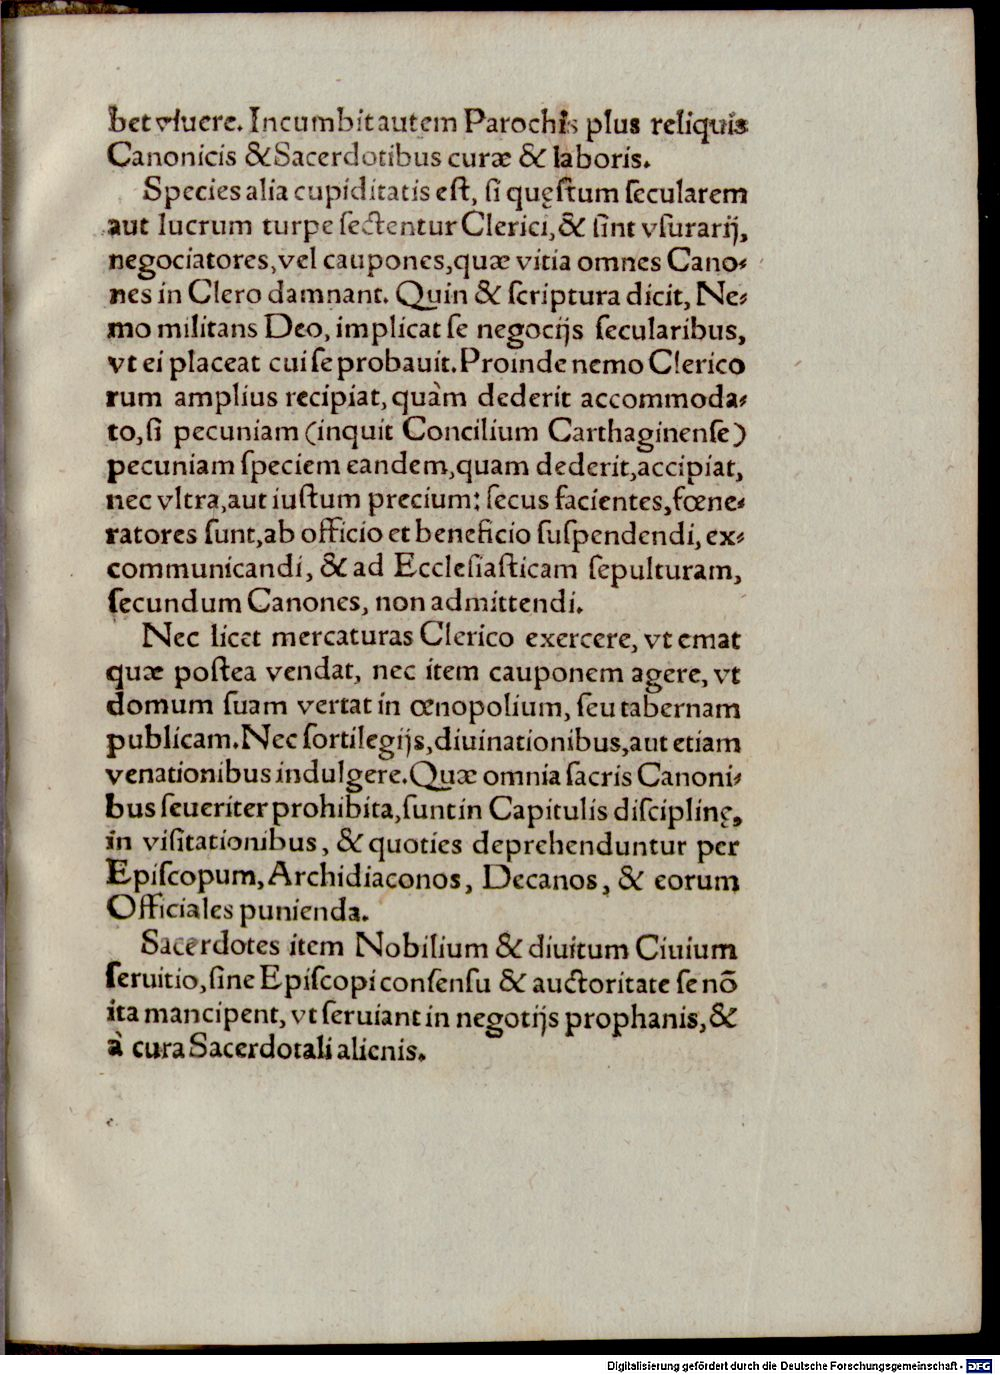 bet viuere. Incumbit autem Parochis plus reliquis
Canonicis & Sacerdotibus curæ & laboris.
Species alia cupiditatis eſt, ſi quęſtum ſecularem
aut lucrum turpe ſectentur Clerici, & ſint vſurarij,
negociatores, vel caupones, quæ vitia omnes Cano⸗
nes in Clero damnant. Quin & ſcriptura dicit, Ne⸗
mo militans Deo, implicat ſe negocijs ſecularibus,
vt ei placeat cui ſe probauit. Proinde nemo Clerico
rum amplius recipiat, quàm dederit accommoda⸗
to, ſi pecuniam (inquit Concilium Carthaginenſe)
pecuniam ſpeciem eandem, quam dederit, accipiat,
nec vltra, aut iuſtum precium: ſecus facientes, fœne⸗
ratores ſunt, ab officio et beneficio ſuſpendendi, ex⸗
communicandi, & ad Eccleſiaſticam ſepulturam,
ſecundum Canones, non admittendi.
Nec licet mercaturas Clerico exercere, vt emat
quæ poſtea vendat, nec item cauponem agere, vt
domum ſuam vertat in œnopolium, ſeu tabernam
publicam. Nec ſortilegijs, diuinationibus, aut etiam
venationibus indulgere. Quæ omnia ſacris Canoni⸗
bus ſeueriter prohibita, ſunt in Capitulis diſciplinę,
in viſitationibus, & quoties deprehenduntur per
Epiſcopum, Archidiaconos, Decanos, & eorum
Officiales punienda.
Sacerdotes item Nobilium & diuitum Ciuium
ſeruitio, ſine Epiſcopi conſenſu & auctoritate ſe nõ
ita mancipent, vt ſeruiant in negotijs prophanis, &
à cura Sacerdotali alienis.
Digitalisierung gefördert durch die Deutsche Forschungsgemeinschaft - DFG